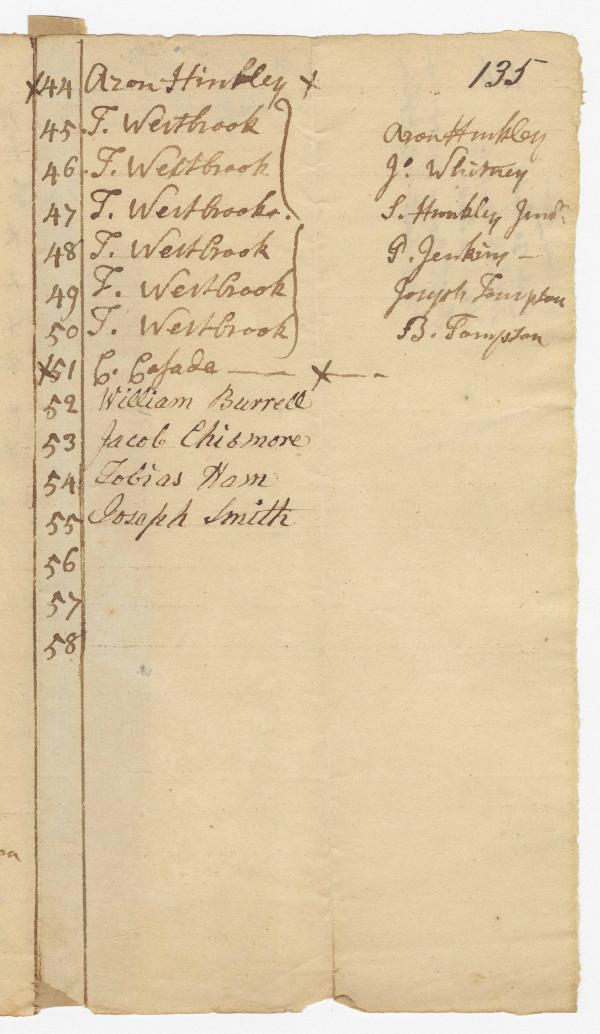 135
x44 Aron Hinkley x
45 T. Westbrook
46 T. Westbrook
47 T. Westbrook.
48 T. Westbrook
49 T. Westbrook
50 T. Westbrook
x51 C. Casada — x —
52 William Burrell
53 Jacob Chismore
54 Tobias Ham
55 Joseph Smith
56
57
58
Aron Hinkley
Jo. Whitney
S. Hinkley Junr
P. Jenkins —
Joseph Tompson
B. Tompson